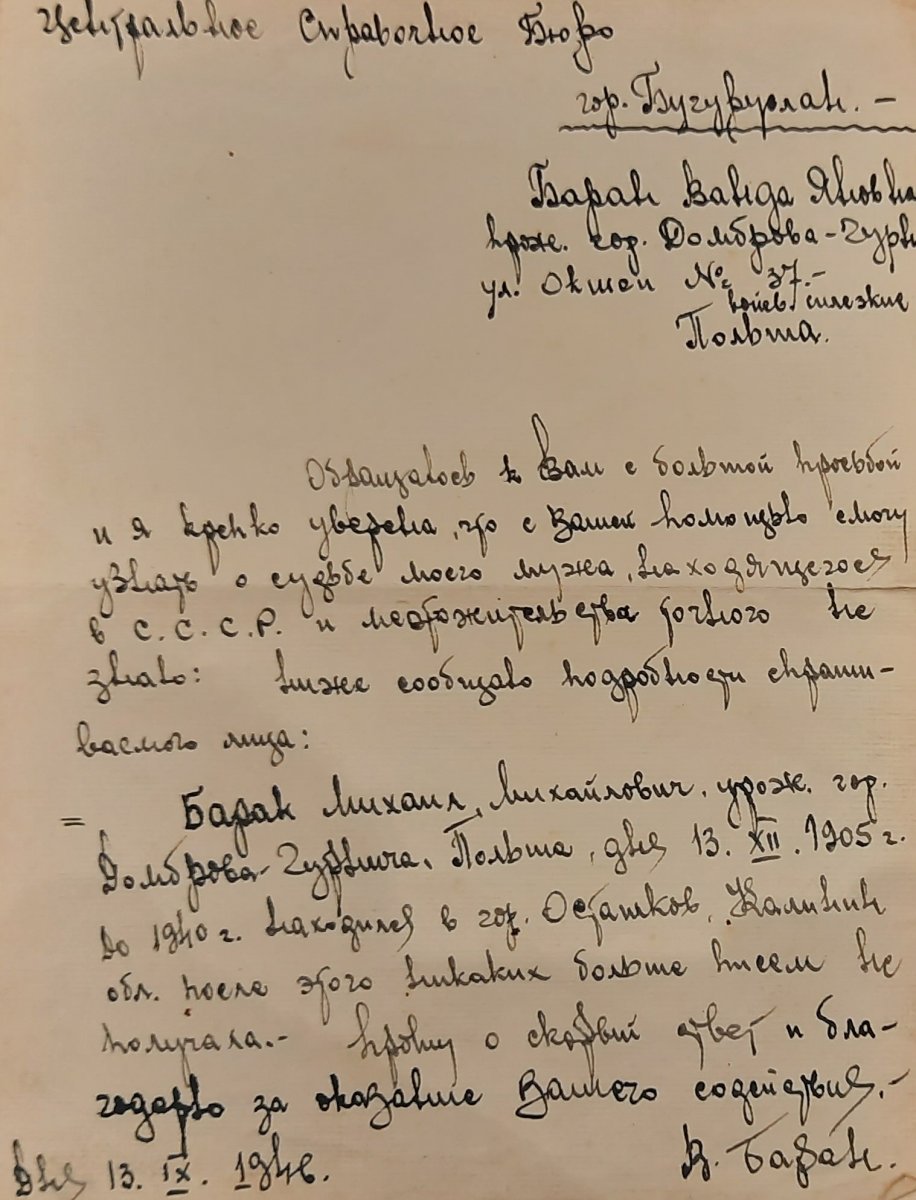 Центральное Справочное Бюро
гор. Бугуруслан. -
Баран Ванда Яновна
прож. гор. Домброва-Гурн
ул. Окшеи № 37.-
воев. силезкие
Польша.
Обращаюсь к Вам с большой просьбой
и я крепко уверена, что с Вашей помощью смогу
узнать о судьбе моего мужа, находящегося
в С.С.С.Р. и местожительства точного не
знаю: ниже сообщаю подробности спраши-
ваемого лица:
= Баран Михаил, Михайлович, урож. гор.
Домброва-Гурнича, Польша, дня 13. XII. 1905 г.
до 1940 г. находился в гор. Осташков, Калинин
обл. после этого никаких больше писем не
получала.- Прошу о скорый ответ и бла-
годарю за оказание Вашего содействия.-
Дня 13. IX. 1946. В. Баран.